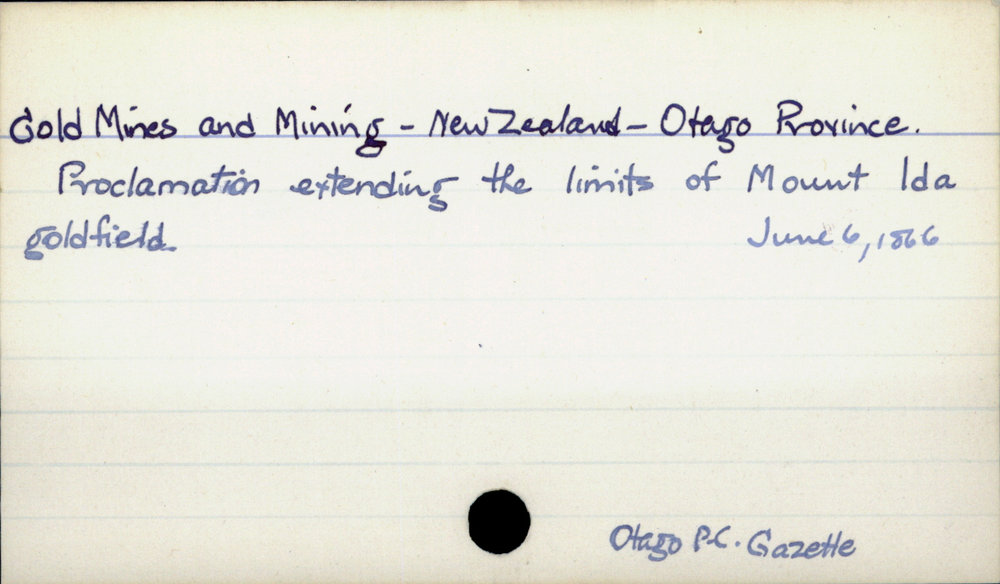 Gold Mines and Mining - New Zealand - Otago Province.
Proclamation extending the limits of Mount Ida
goldfield. June 6, 1866
Otago P.C. Gazette